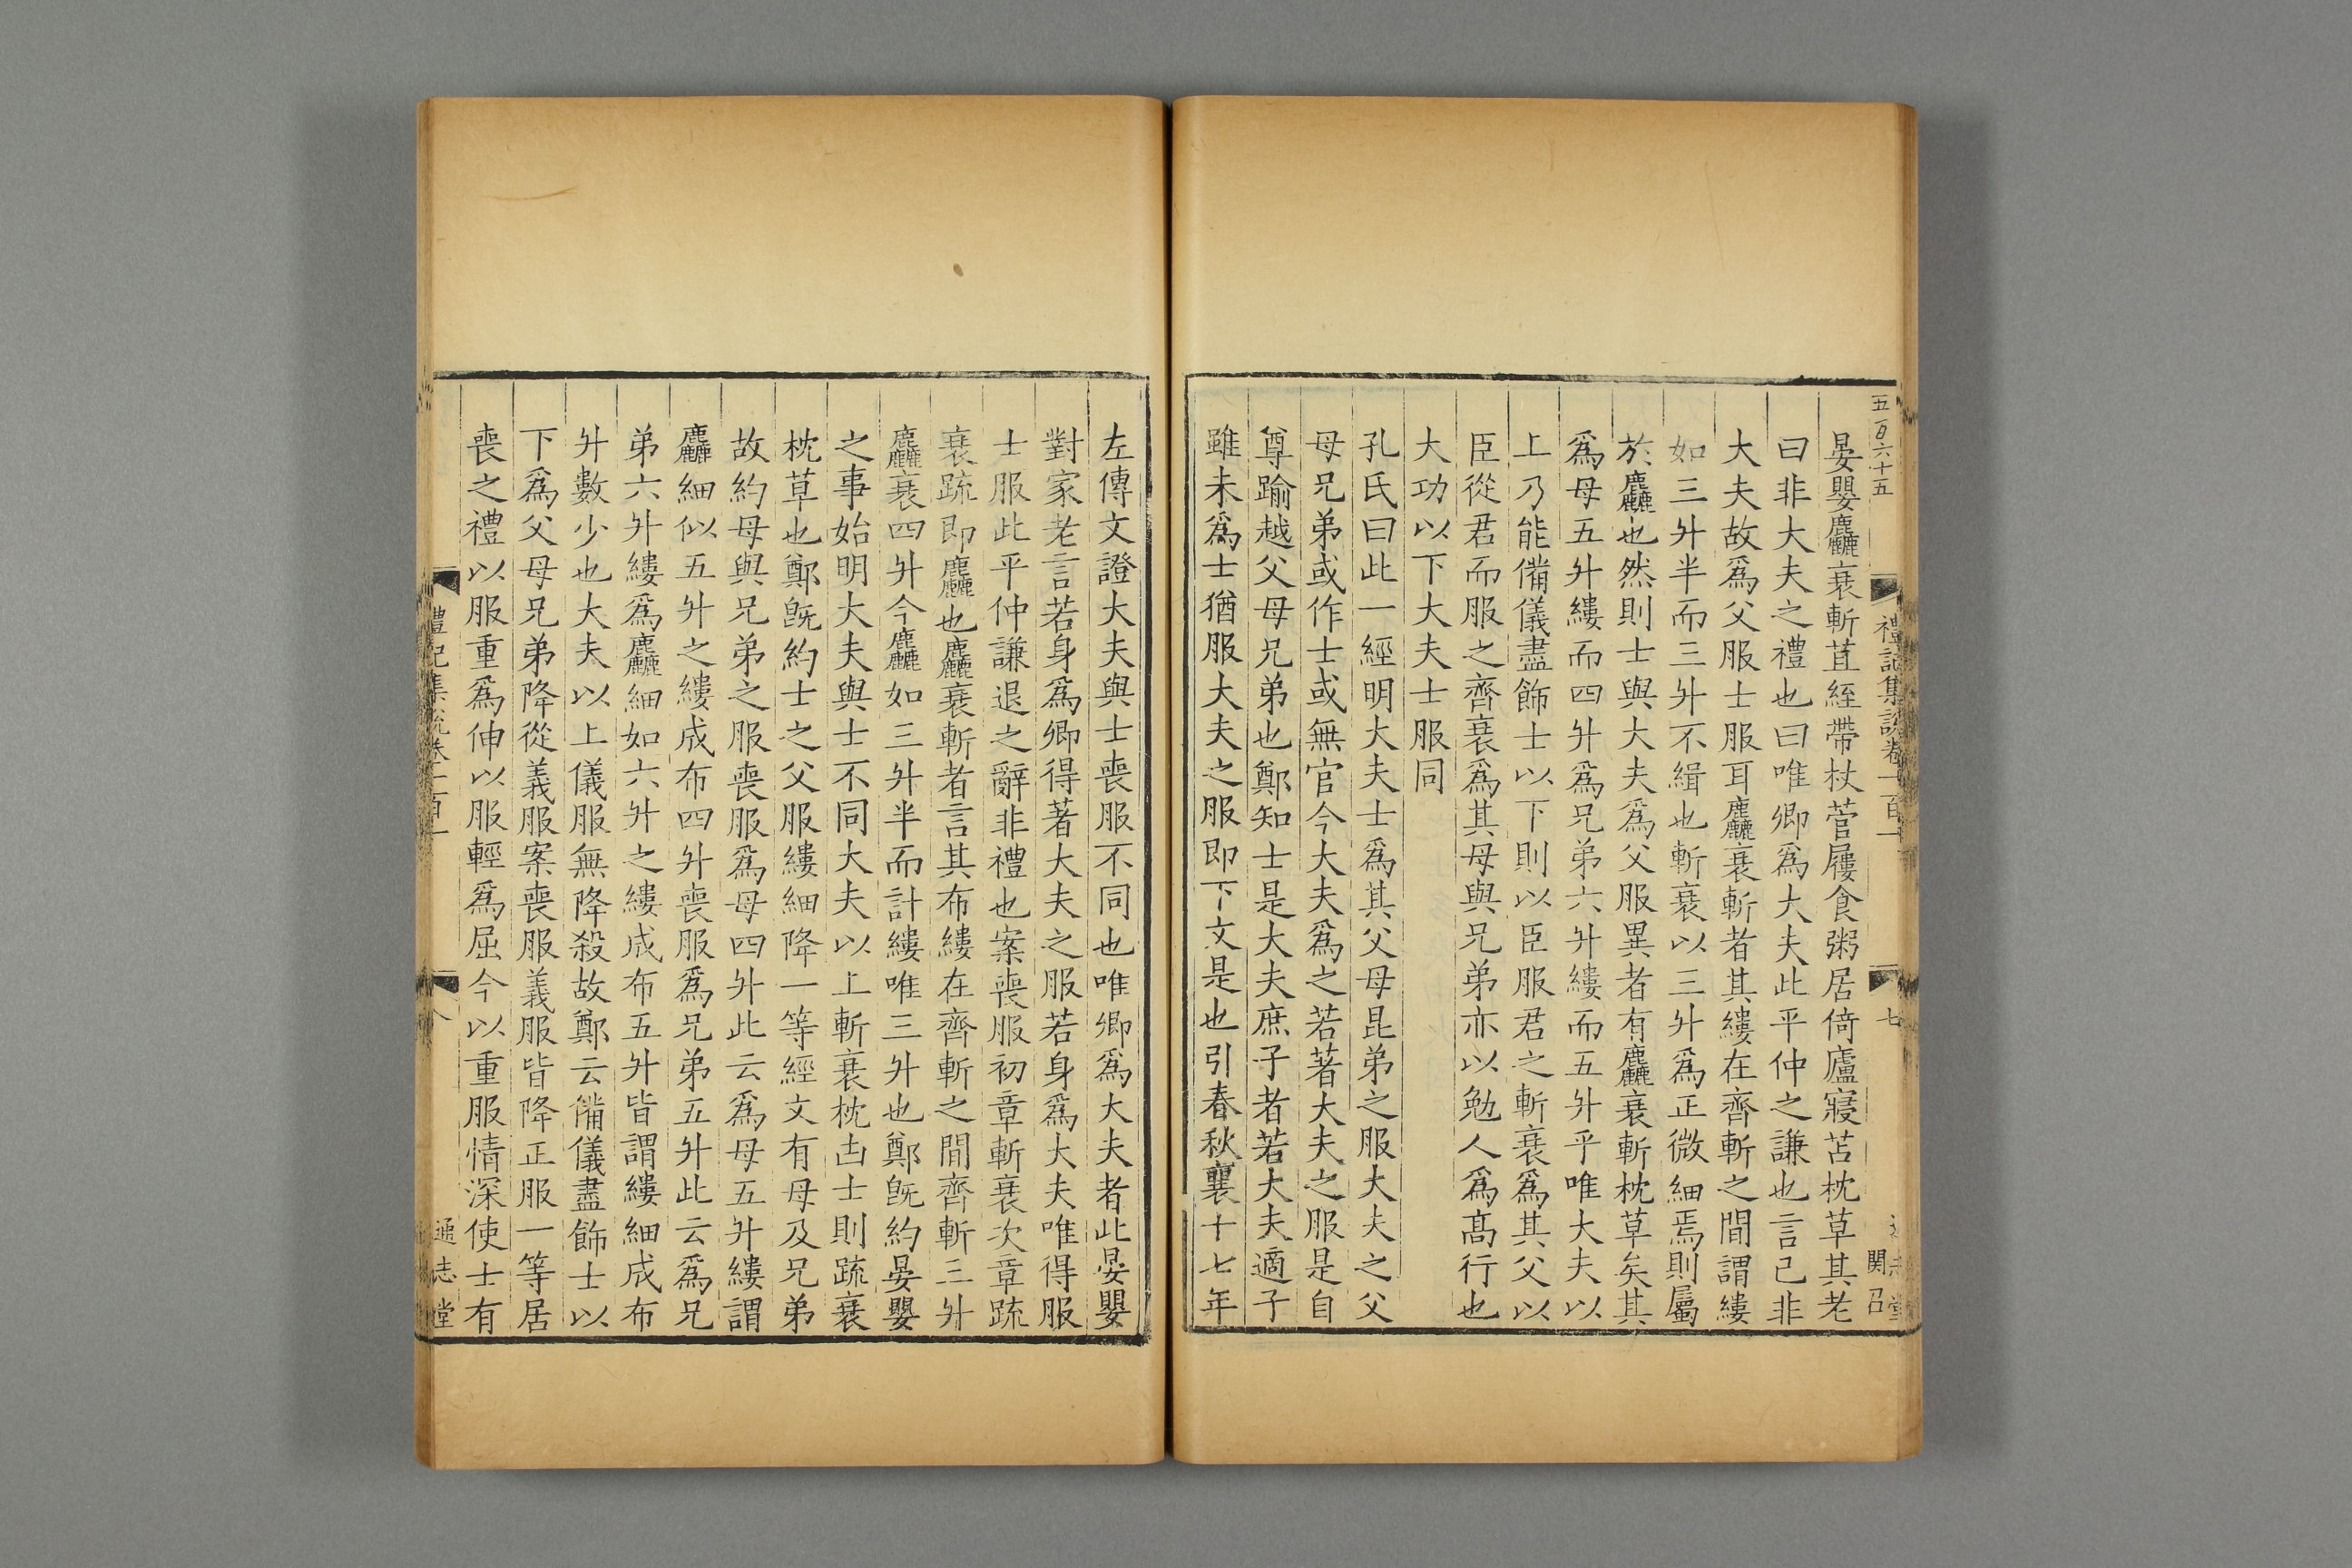 五百六十五
禮記集說卷一百一
七
通志堂
関召
晏嬰麤衰斬苴絰帶杖菅屨食粥居倚廬寢苫枕草其老
曰非大夫之禮也曰唯卿爲大夫此平仲之謙也言己非
大夫故爲父服士服耳麤衰斬者其縷在齊斬之間謂縷
如三升半而三升不緝也斬衰以三升爲正微細焉則屬
於麤也然則士與大夫爲父服異者有麤衰斬枕草矣其
爲母五升縷而四升爲兄弟六升縷而五升乎唯大夫以
上乃能備儀盡飾士以下則以臣服君之斬衰爲其父以
臣從君而服之齊衰爲其母與兄弟亦以勉人爲高行也
大功以下大夫士服同
孔氏曰此一經明大夫士爲其父母昆弟之服大夫之父
母兄弟或作士或無官今大夫爲之若著大夫之服是自
尊踰越父母兄弟也鄭知士是大夫庶子者若大夫適子
雖未爲士猶服大夫之服即下文是也引春秋襄十七年
左傳文證大夫與士喪服不同也唯卿爲大夫者此晏嬰
對家老言若身爲卿得著大夫之服若身爲大夫唯得服
士服此平仲謙退之辭非禮也案喪服初章斬衰次章疏
衰疏即麤也麤衰斬者言其布縷在齊斬之間齊斬三升
麤衰四升今麤如三升半而計縷唯三升也鄭旣約晏嬰
之事始明大夫與士不同大夫以上斬衰枕凷士則疏衰
枕草也鄭旣約士之父服縷細降一等經文有母及兄弟
故約母與兄弟之服喪服爲母四升此云爲母五升縷謂
麤細似五升之縷成布四升喪服爲兄弟五升此云爲兄
弟六升縷爲麤細如六升之縷成布五升皆謂縷細成布
升數少也大夫以上儀服無降殺故鄭云備儀盡飾士以
下爲父母兄弟降從義服案喪服義服皆降正服一等居
喪之禮以服重爲伸以服輕爲屈今以重服情深使士有
禮記集說卷一百一
八
通志堂